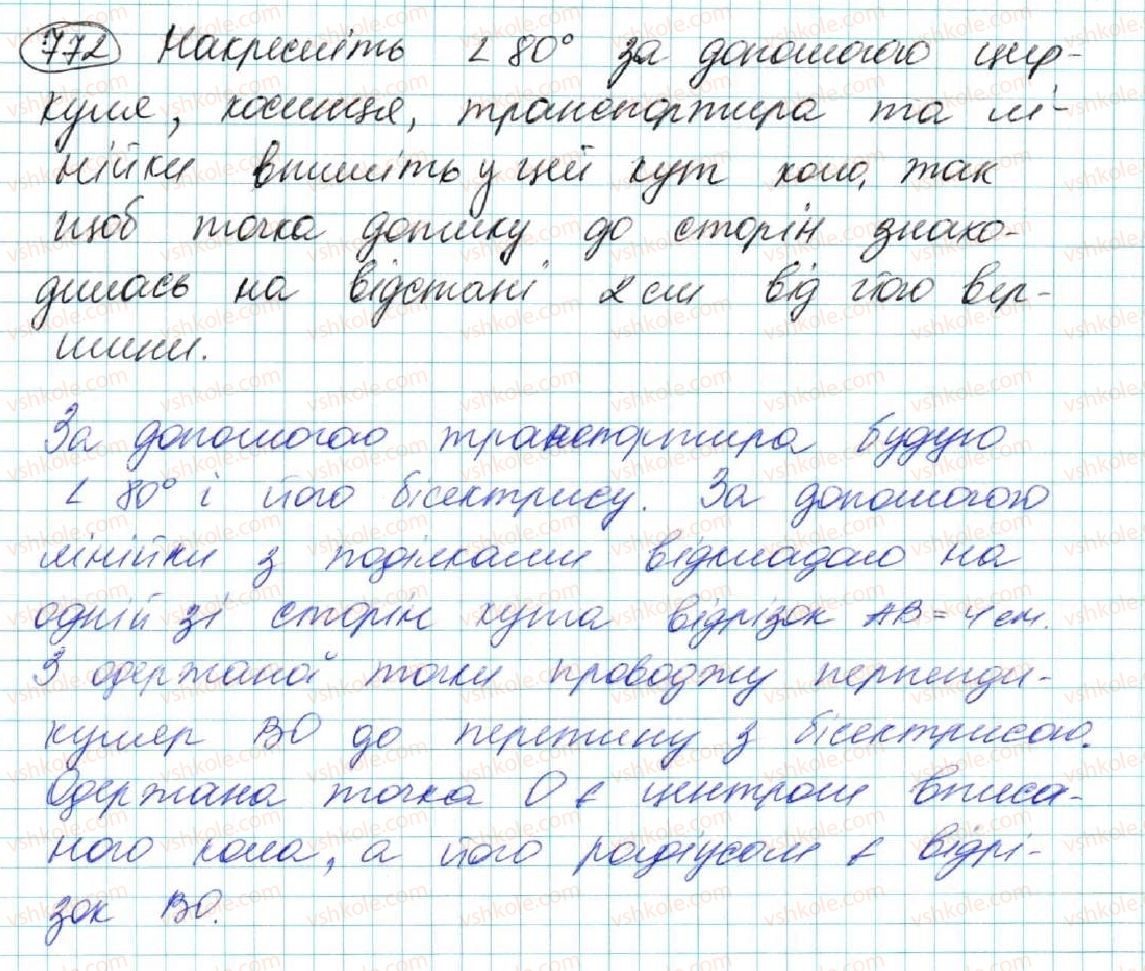 772 Накресліть ∠80° за допомогою цир-
куля, косинця, транспортира та лі-
нійки впишіть у цей кут коло, так
щоб точка дотику до сторін знахо-
дилась на відстані 2 см від його вер-
шини.
За допомогою транспортира будую
∠ 80° і його бісектрису. За допомогою
лінійки з поділками відкладаю на
одній зі сторін кута відрізок AB = 4 см.
З одержаної точки проводжу перпенди-
куляр BO до перетину з бісектрисою.
Одержана точка O є центром вписа-
ного кола, а його радіусом є відрі-
зок BO.